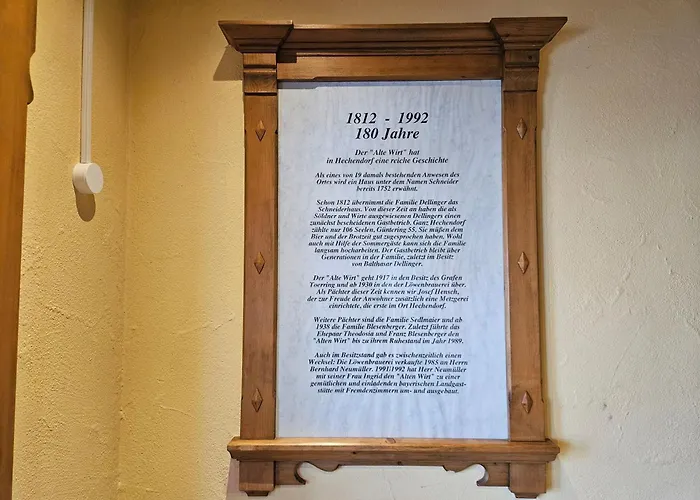 1812 - 1992
180 Jahre
Der "Alte Wirt" hat
in Hechendorf eine reiche Geschichte
Als eines von 19 damals bestehenden Anwesen des
Ortes wird ein Haus unter dem Namen Schneider
bereits 1752 erwähnt.
Schon 1812 übernimmt die Familie Dellinger das
Schneiderhaus. Von dieser Zeit an haben die als
Söldner und Wirte ausgewiesenen Dellingers einen
zunächst bescheidenen Gastbetrieb. Ganz Hechendorf
zählte nur 106 Seelen, Güntering 55. Sie müßen dem
Bier und der Brotzeit gut zugesprochen haben. Wohl
auch mit Hilfe der Sommergäste kann sich die Familie
langsam hocharbeiten. Der Gastbetrieb bleibt über
Generationen in der Familie, zuletzt im Besitz
von Balthasar Dellinger.
Der "Alte Wirt" geht 1917 in den Besitz des Grafen
Toerring und ab 1930 in den der Löwenbrauerei über.
Als Pächter dieser Zeit kennen wir Josef Hensch,
der zur Freude der Anwohner zusätzlich eine Metzgerei
einrichtete, die erste im Ort Hechendorf.
Weitere Pächter sind die Familie Sedlmaier und ab
1938 die Familie Blesenberger. Zuletzt führte das
Ehepaar Theodosia und Franz Blesenberger den
"Alten Wirt" bis zu ihrem Ruhestand im Jahr 1989.
Auch im Besitzstand gab es zwischenzeitlich einen
Wechsel: Die Löwenbrauerei verkaufte 1985 an Herrn
Bernhard Neumüller. 1991/1992 hat Herr Neumüller
mit seiner Frau Ingrid den "Alten Wirt" zu einer
gemütlichen und einladenden bayerischen Landgast-
stätte mit Fremdenzimmern um- und ausgebaut.